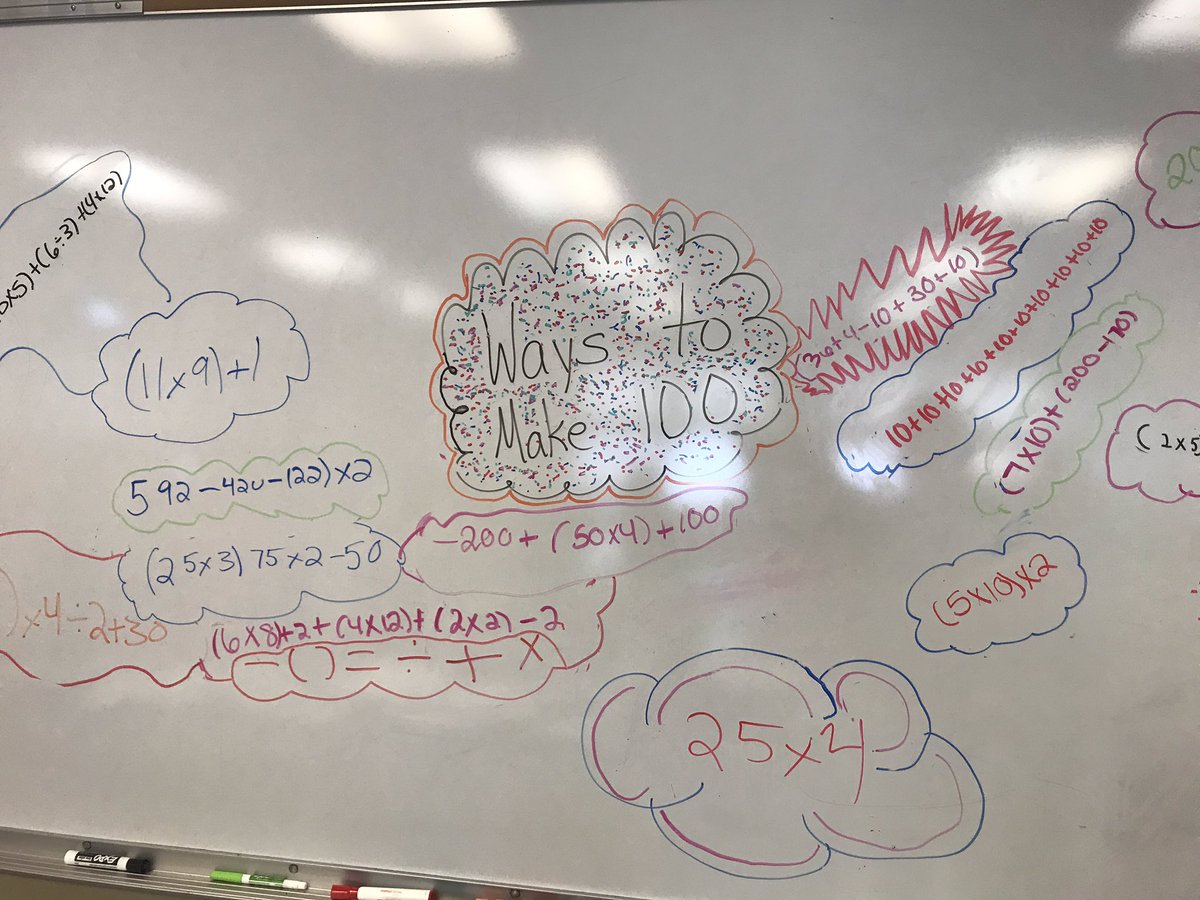 x5)+(6÷3)+(4x12)
(11x9)+1
Ways to
Make 100
(36+4-10+30+10)
10+10+10+10+10+10+10+10+10+10
(7x10)+(200-170)
20
(2x5)
592-420-122)x2
(25x3)75x2-50
-200+(50x4)+100
)x4÷2+30
(6x8)+2+(4x12)+(2x2)-2
-()=÷+x
(5x10)x2
25x4